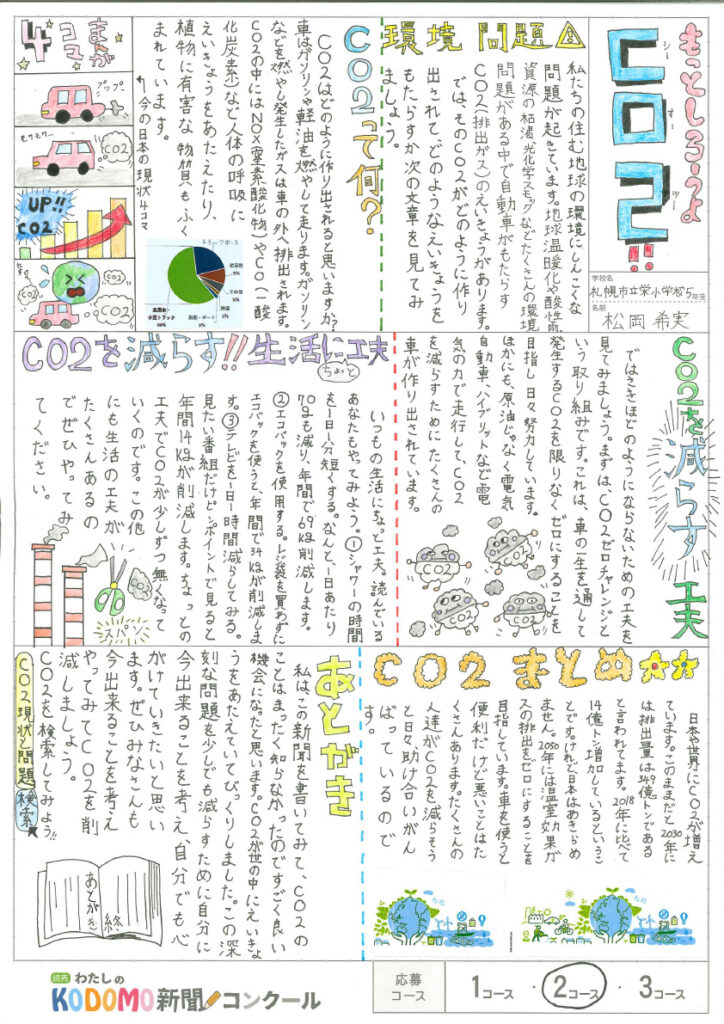 もっとしろうよ
CO2!!
シーオーツー
学校名
札幌市立栄小学校5年生
名前
松岡 希実
環境問題
私たちの住む地球の環境にしんこくな
問題が起きています。地球温暖化や酸性雨、
資源の枯渇、光化学スモッグなどたくさんの環境
問題がある中で自動車がもたらす
CO2(排出ガス)のえいきょうがあります。
では、そのCO2がどのように作り
出されて、どのようなえいきょうを
もたらすか次の文章を見てみ
ましょう。
CO2って何?
CO2はどのように作り出されると思いますか?
車はガソリンや軽油を燃やして走ります。ガソリン
などを燃やし発生したガスは車の外へ排出されます。
CO2の中にはNOX(窒素酸化物)やCO(一酸
化炭素)など人体の呼吸に
えいきょうをあたえたり、
植物に有害な物質もふく
まれています。
↰今の日本の現状4コマ
まんが
4コマ
プップー
モクモク…
CO2
UP!!
CO2
CO2
CO2
CO2
乗用車・
小型トラック
その他
CO2を減らす工夫
ではさきほどのようにならないための工夫を
見てみましょう。まずはCO2ゼロチャレンジと
いう取り組みです。これは、車の一生を通して
発生するCO2を限りなくゼロにすることを
目指し日々努力しています。
ほかにも、原油じゃなく電気
自動車、ハイブリットなど電
気の力で走行してCO2
を減らすためにたくさんの
車が作り出されています。
CO2を減らす!!生活に工夫
ちょこっと
いつもの生活にちょっと工夫。読んでいる
あなたもやってみよう。①シャワーの時間
を1日1分短くする。なんと、一日あたり
70gも減り、年間で69kg削減します。
②エコバックを使用する。レジ袋を買わずに
エコバックを使うと、年間で34kgが削減しま
す。③テレビを1日1時間減らしてみる。
見たい番組だけピンポイントで見ると
年間14kgが削減します。ちょっとの
工夫でCO2が少しずつ無くなって
いくのです。この他
にも生活の工夫が
たくさんあるの
でぜひやってみ
てください。
スパン
CO2まとめ
日本や世界にCO2が増え
ています。このままだと2030年に
は排出量は349億トンである
と言われてます。2018年に比べて
14億トン増加しているというこ
とです。けれど日本はあきらめ
ません。2050年には温室効果が
スの排出をゼロにすることを
目指しています。車を使うと
便利だけど悪いことはた
くさんあります。たくさんの
人達がCO2を減らそう
と日々助け合いがん
ばっているので
す。
あとがき
私は、この新聞を書いてみて、CO2の
ことはまったく知らなかったのですごく良い
機会になったと思います。CO2が世の中にえいきょ
うをあたえていてびっくりしました。この深
刻な問題を少しでも減らすために自分に
今出来ることを考え、自分でも心
がけていきたいと思い
ます。ぜひみなさんも
今出来ることを考え
やってみてCO2を削
減しましょう。
CO2を検索してみよう!!
CO2現状と問題 検索
あとがき
終
読売 わたしの
KODOMO新聞コンクール
応募
コース
1コース・2コース・3コース